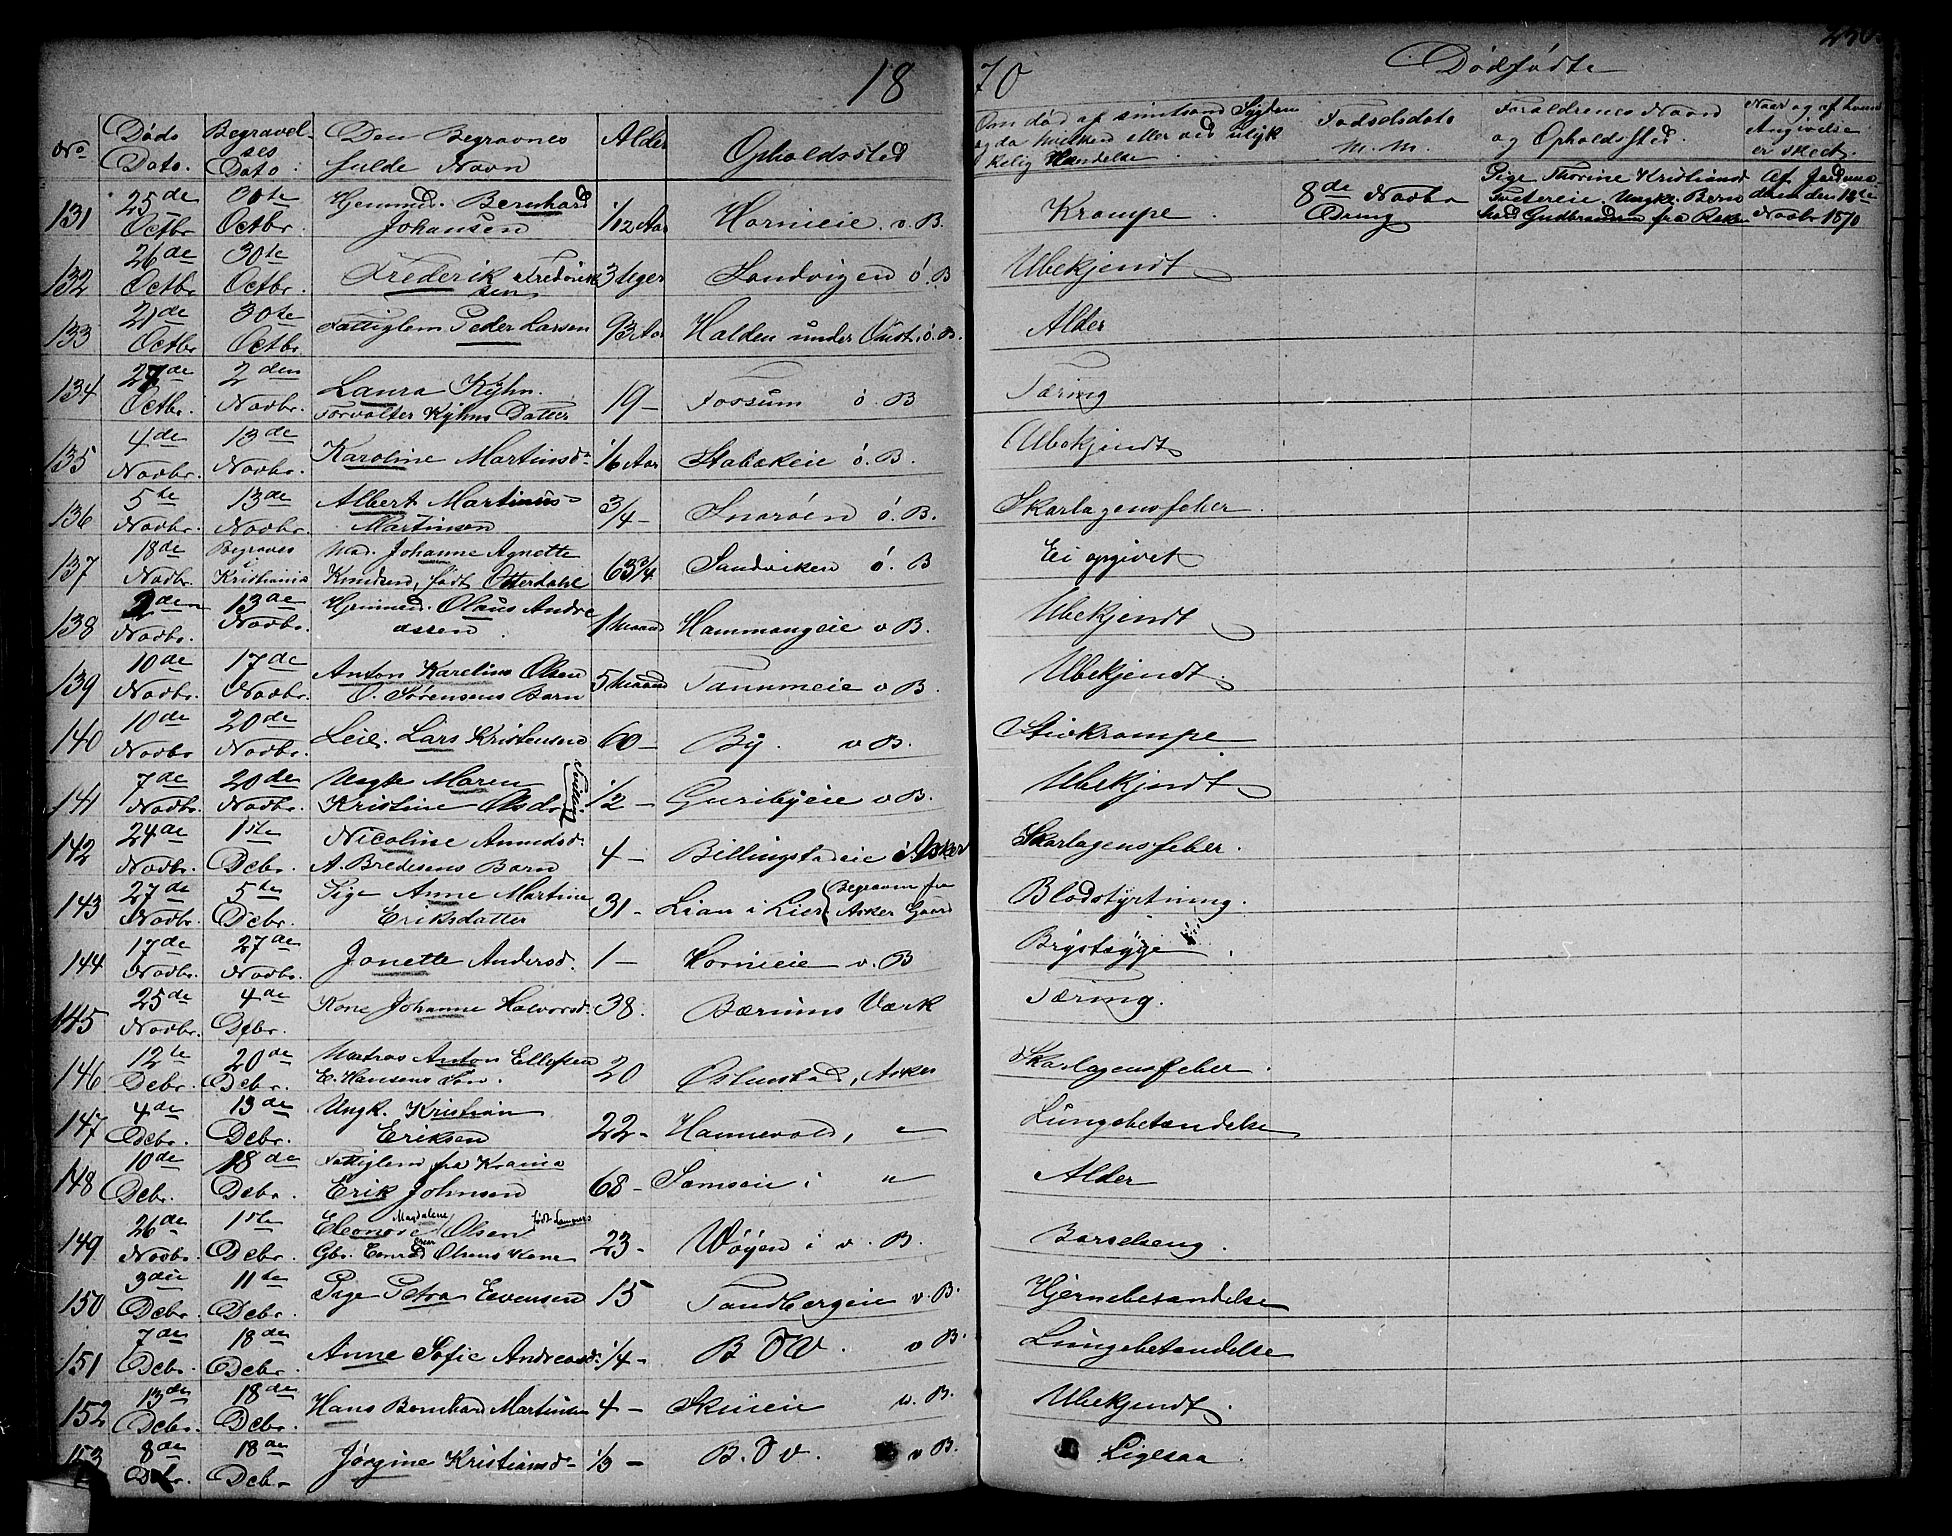 18 70
Dødfødte
No
Døds Dato.
Begravelses Dato:
Den Begravnes fulde Navn
Alder
Opholdssted
Om død af smitsom Sygdom og da hvilken eller ved ulykkelig Hændelse
Fødselsdato m. m.
Forældrenes Navn og Opholdssted.
Naar og af hvem Angivelse er skeet.
131 25de Octbr 30te Octbr. Hjemmed. Bernhard Johansen 1/12 Aar Hornieie. v. B. Krampe.
8de Novbr Dreng
Pige Thorine Kristiansd
Ungk. Bernhard Gudbrandsen fra
Af Jordemoderen den 18de Novbr 1870
132 26de Octbr 30te Octbr. Frederik Fredriksen 3 Uger Sandvigen ø. B Ubekjendt
133 21de Octbr 30te Octbr. Fattiglem Peder Larsen 93 Aar Halden under ø. B. Alder
134 27de Octbr. 2den Novbr. Laura Kyhn. Forvalter Kyhns Datter 19 – Fossum ø. B Tæring
135 4de Novbr. 13de Novbr. Karoline Martinsd. 1/6 Aar Stabækeie ø. B. Ubekjendt
136 5te Novbr. 13de Novbr. Albert Martinius Martinsen 3/4 – Snarøen ø. B. Skarlagensfeber.
137 18de Novbr. Begraves i Kristiania Mad. Johanne Agnette Knudsen, født Otterdahl 63 3/4 Sandviken ø. B Ei opgivet
138 2den Novbr. 13de Novbr. Hjemmed. Olaus Andreassen. 1 Maaned Hammangeie v B. Ubekjendt
139 10de Novbr. 17de Novbr. Anton Karelius Olsen O. Sørensens Barn 5 Maaned Tanumeie v B. Ubekjendt.
140 10de Novbr 20de Novbr. Leil. Lars Kristensen 60 – By. v B. Stivkrampe
141 7de Novbr. 20de Novbr. Uægte Maren Kristine Olsdr 1/2 – Guribyeie v B. Ubekjendt
142 24de Novbr. 1ste Debr. Nicoline Amundsd. A. Bredesens Barn 4 – Billingstadeie i Asker Skarlagensfeber.
143 27de Novbr. 5te Debr. Pige Anne Martine Eriksdatter 31 – Lian i Lier (Begraven fra Asker Gaard Blodstyrtning.
144 17de Novbr. 27de Novbr. Jonette Andersd. 1 – Hornieie v. B Brystsyge.
145 25de Novbr. 4de Debr. Kone Johanne Halvorsd. 38. Bærums Værk Tæring.
146 12te Debr. 20de Debr. Matros Anton Ellefsen E. Hansens Søn. 20 Østenstad, Asker Skarlagensfeber.
147 4de Debr. 13de Debr. Ungk. Kristian Eriksen 22 – Hannevold, " Lungebetændelse
148 10de Debr. 18de Debr. Fattiglem fra Krania Erik Johnsen 68 – Semseie i " Alder
149 26de Novbr. 1ste Debr. Eleonore Magdalene Olsen født Gbr. Conrad Olsens Kone 23 – Wøyen i v. B. Barselseng.
150 3die Debr. 11te Debr. Pige Petra Evensen 15 Tandbergeie v. B. Hjernebetændelse
151 7de Debr. 18de Debr. Anne Sofie Andreasd. 1/4 – B V W. v B. Lungebetændelse
152 13de Debr. 18de Debr. Hans Bernhard Martinsen 4 – Skuieie v. B. Ubekjendt.
153 8de Debr. 18de Debr. Jørgine Kristiansd. 1/3 – B. V v. v B. Ligesaa.